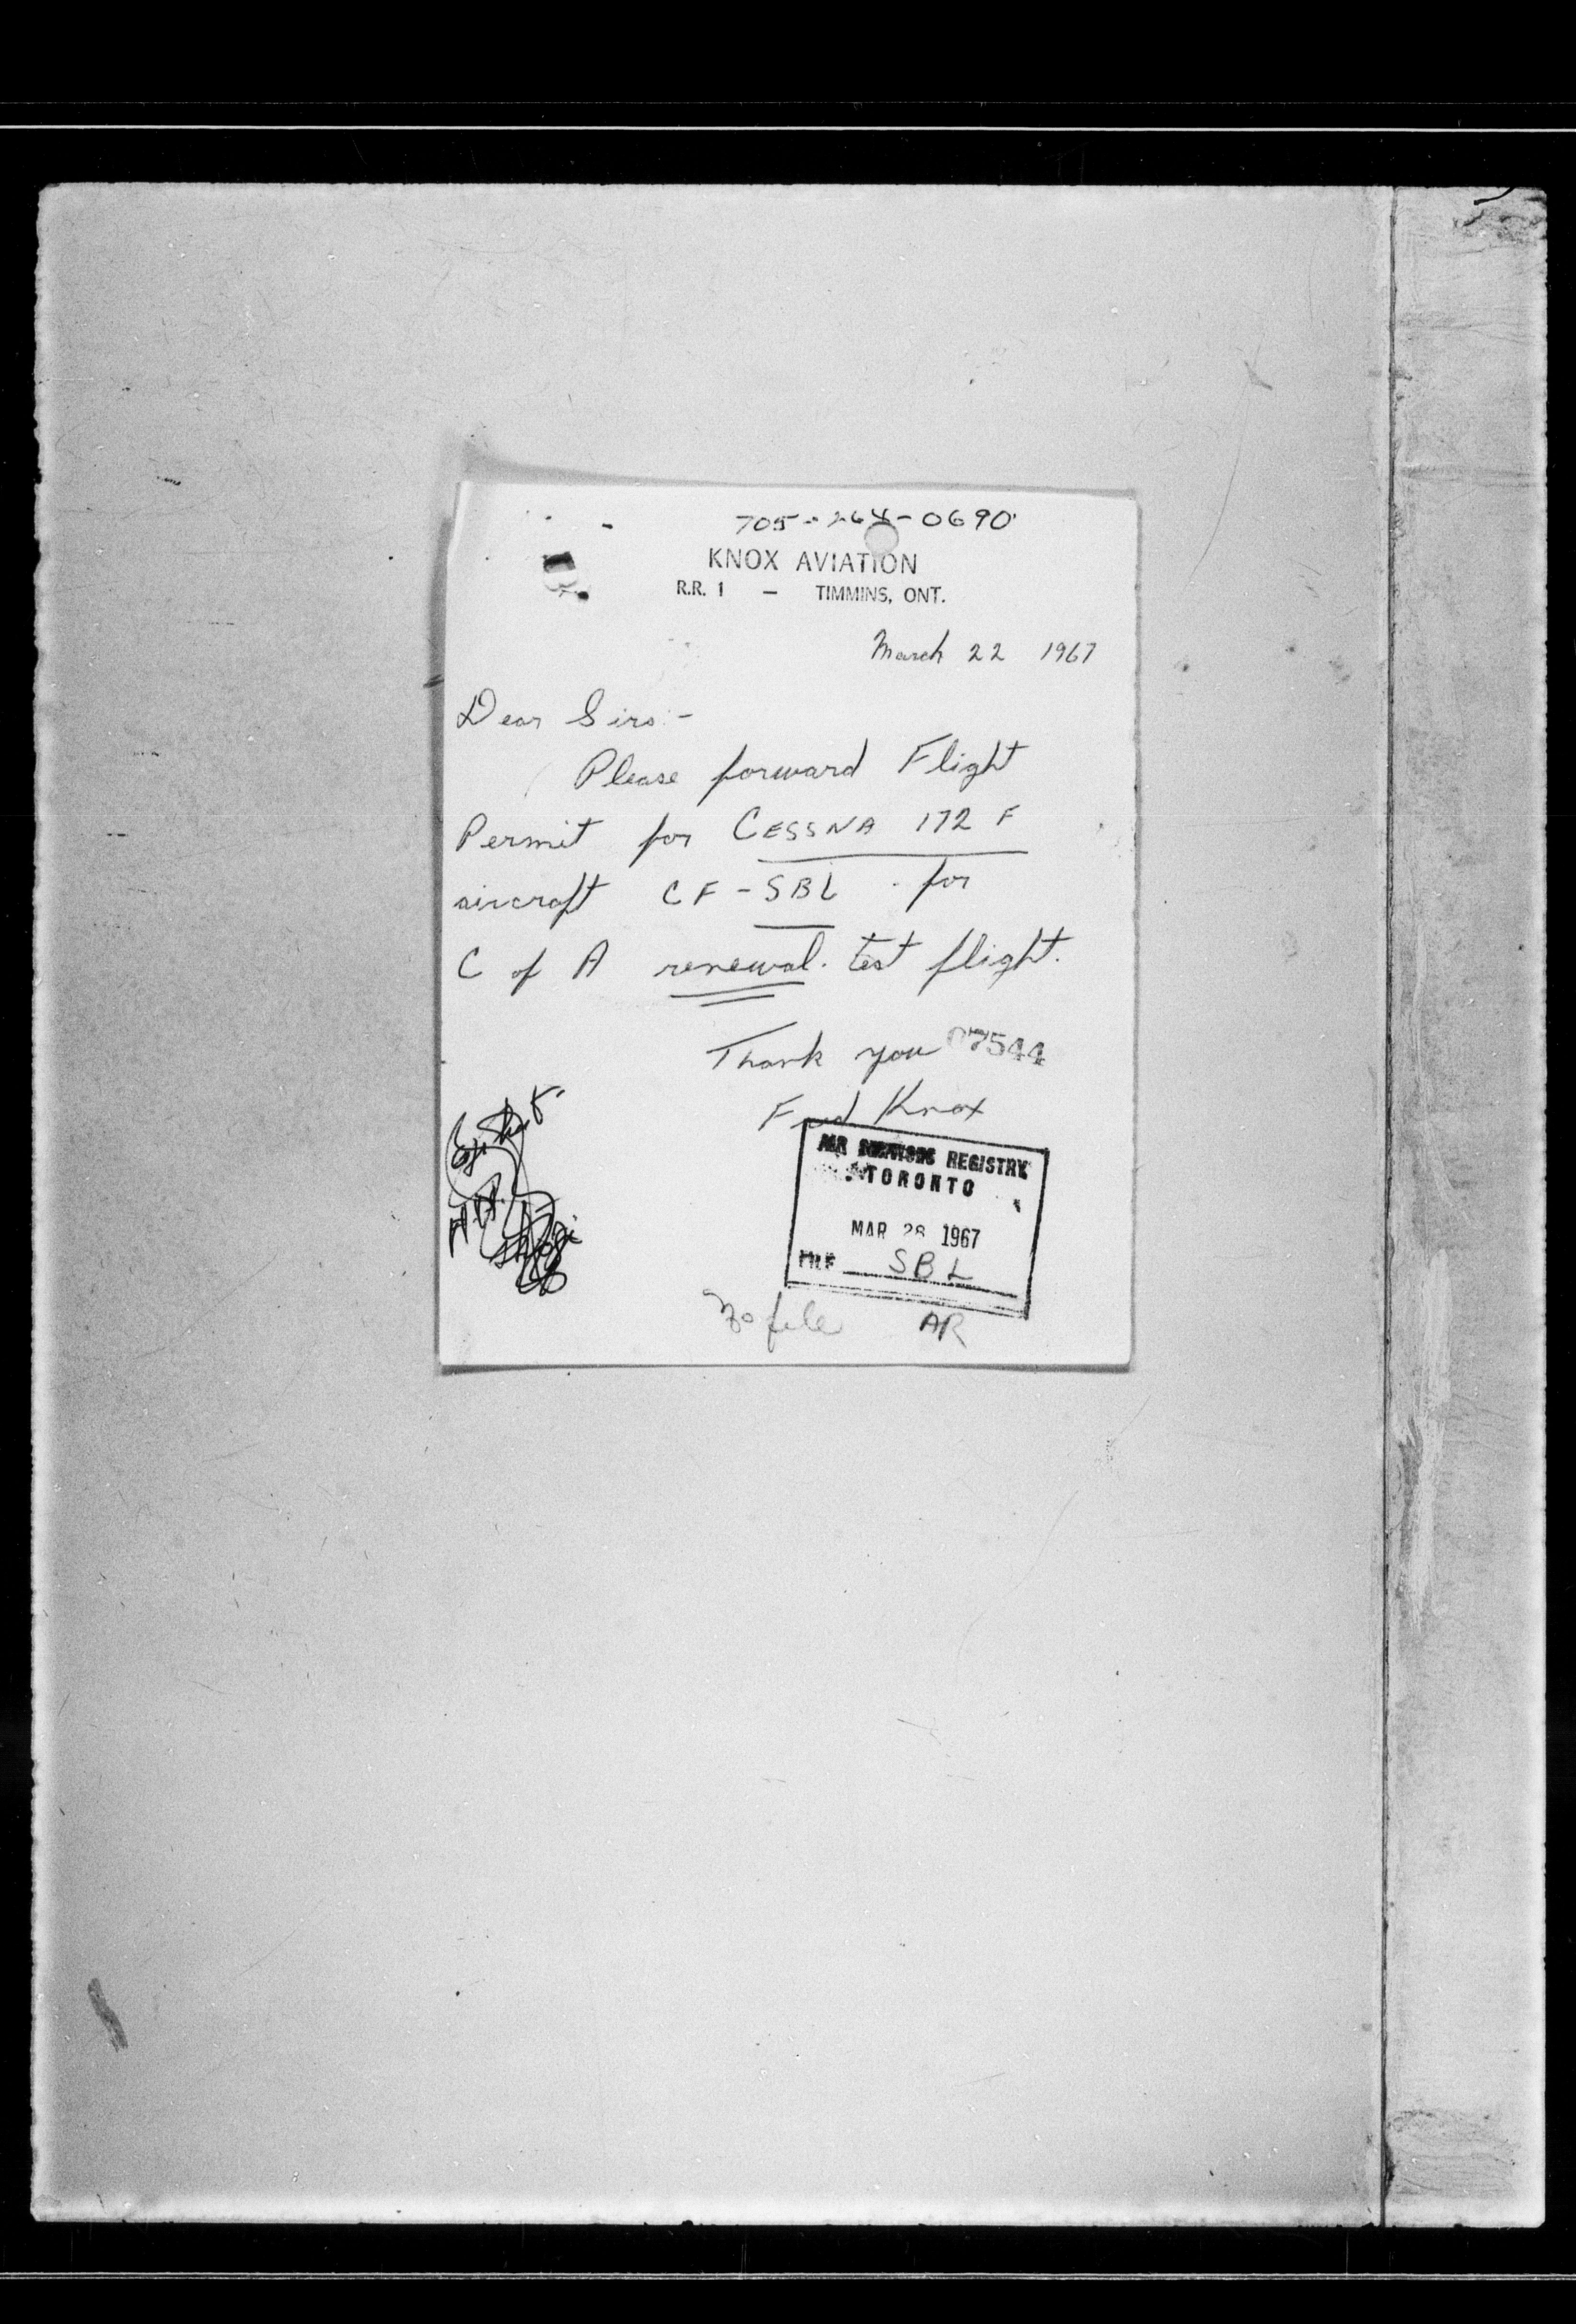 705-264-0690
KNOX AVIATION
R.R. 1 — TIMMINS, ONT.
March 22 1967
Dear Sirs:-
Please forward Flight
Permit for CESSNA 172 F
aircraft CF-SBL for
C of A renewal. test flight.
Thank you 07544
Fred Knox
AIR SERVICES REGISTRY
TORONTO
MAR 28 1967
FILE SBL
file AR